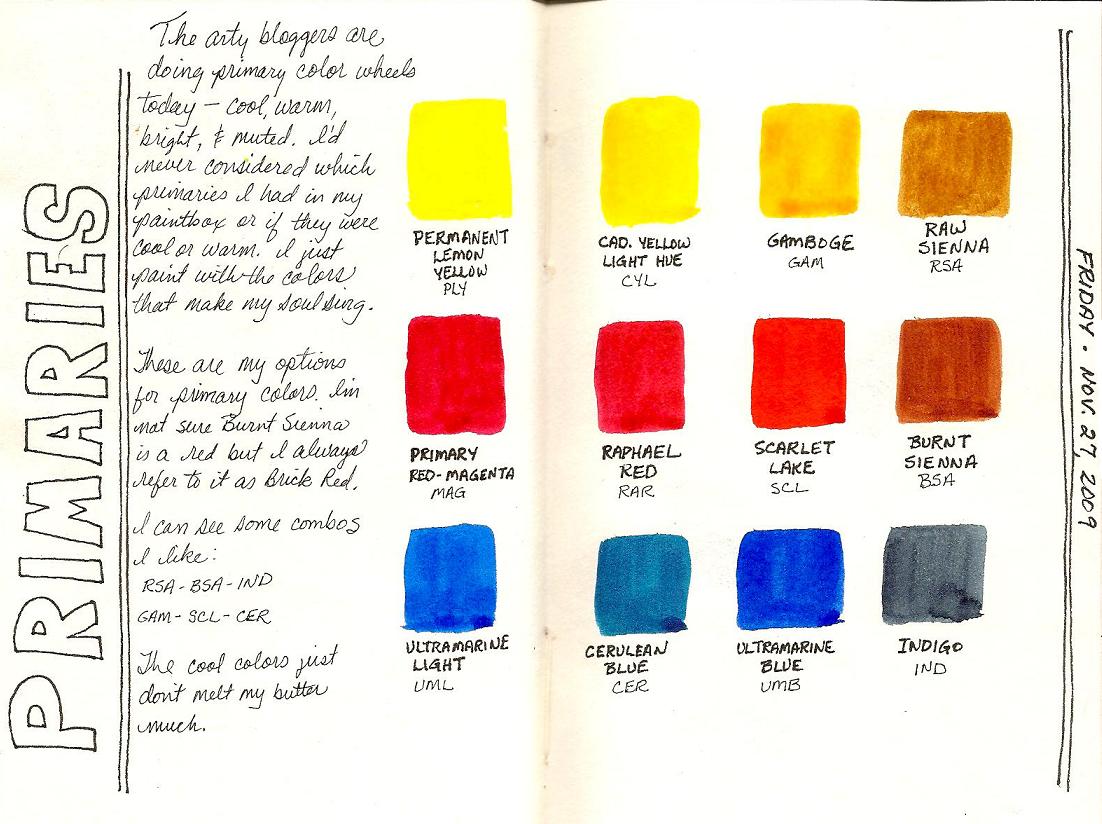 PRIMARIES
The arty bloggers are
doing primary color wheels
today – cool, warm,
bright, & muted. I'd
never considered which
primaries I had in my
paintbox or if they were
cool or warm. I just
paint with the colors
that make my soul sing.
These are my options
for primary colors. I'm
not sure Burnt Sienna
is a red but I always
refer to it as Brick Red.
I can see some combos
I like:
RSA-BSA-IND
GAM-SCL-CER
The cool colors just
don't melt my butter
much.
PERMANENT
LEMON
YELLOW
PLY
CAD. YELLOW
LIGHT HUE
CYL
GAMBOGE
GAM
RAW
SIENNA
RSA
PRIMARY
RED-MAGENTA
MAG
RAPHAEL
RED
RAR
SCARLET
LAKE
SCL
BURNT
SIENNA
BSA
ULTRAMARINE
LIGHT
UML
CERULEAN
BLUE
CER
ULTRAMARINE
BLUE
UMB
INDIGO
IND
FRIDAY • NOV. 27, 2009